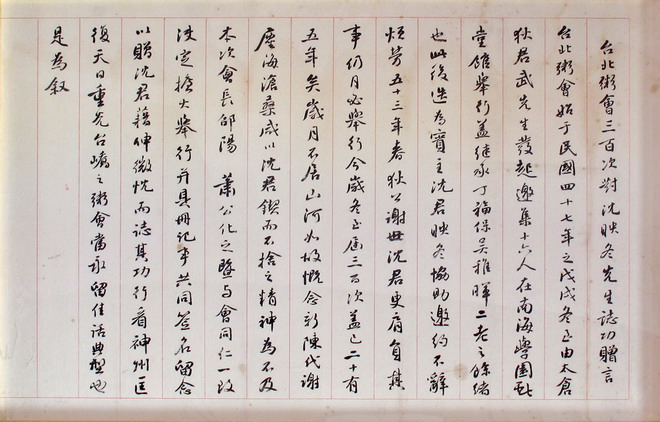 台北粥會三百次對沈映冬先生誌功贈言
台北粥會始于民國四十七年之戊戌冬至由太倉
狄君武先生發起邀集十六人在南海學園
堂館舉行蓋繼承丁福保吳稚暉二老之餘緒
也此後迭為賓主沈君映冬協助邀約不辭
煩勞五十三年春狄公謝世沈君更肩負其
事仍月必舉行今歲冬至屆三百次蓋已二十有
五年矣歲月不居山河如故慨念新陳代謝
塵海滄桑咸以沈君鍥而不捨之精神為不及
本次會長邵陽 蕭公化之暨與會同仁一致
決定擴大舉行并具冊記事共同簽名留念
以贈沈君藉伸微忱而誌其功行看神州匡
復天日重光台嶠之粥會當永留佳話典型也
是為叙